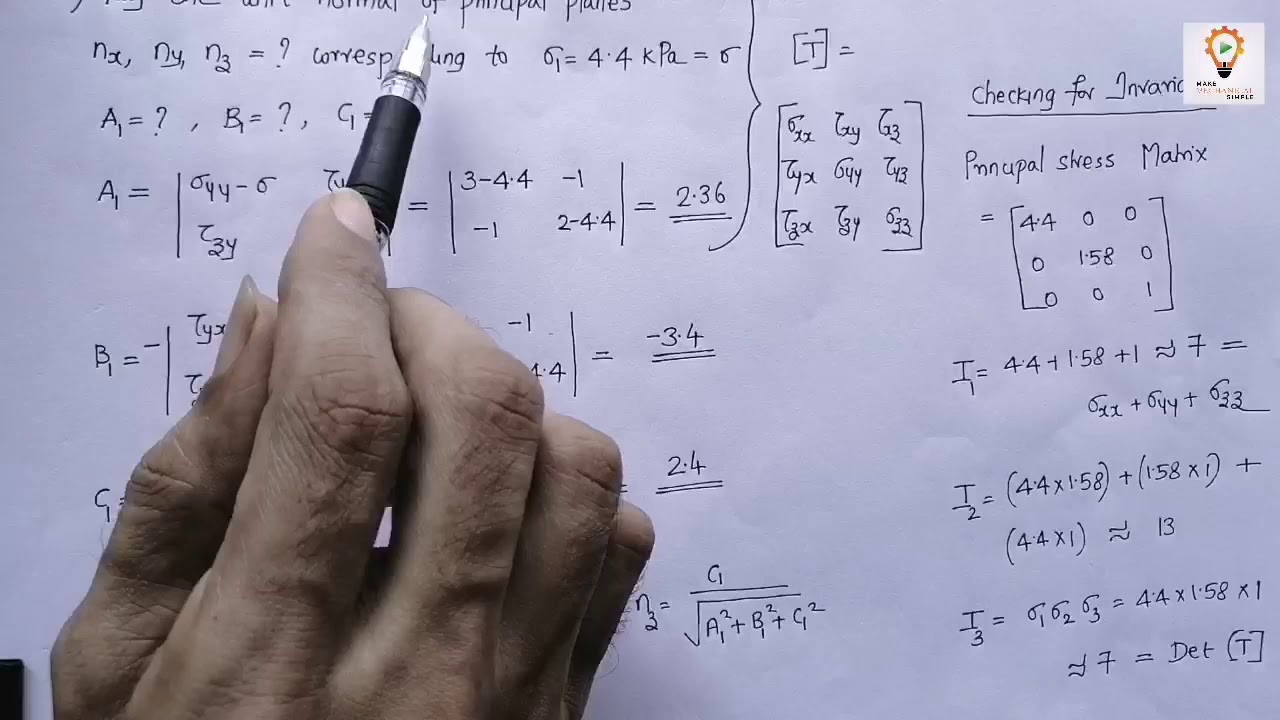 normal of principal planes
nx, ny, nz = ? corresponding to σ1 = 4.4 kPa = σ
A1 = ? , B1 = ? , C1 =
A1 = | σyy - σ
τzy | = | 3-4.4 -1
-1 2-4.4 | = 2.36
B1 = - | τyx -1
4.4 | = -3.4
C1 = 2.4
nz = C1 / √A1² + B1² + C1²
[T] =
[ σxx τxy τxz
τyx σyy τyz
τzx τzy σzz ]
Checking for
MAKE
MECHANICAL
SIMPLE
Principal stress Matrix
= [ 4.4 0 0
0 1.58 0
0 0 1 ]
I1 = 4.4 + 1.58 + 1 ≈ 7 =
σxx + σyy + σzz
I2 = (4.4 × 1.58) + (1.58 × 1) +
(4.4 × 1) ≈ 13
I3 = σ1 σ2 σ3 = 4.4 × 1.58 × 1
≈ 7 = Det [T]